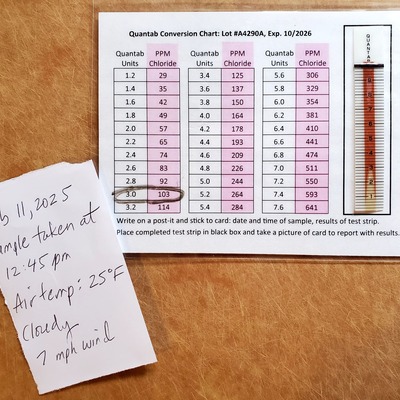 Quantab Conversion Chart: Lot #A4290A, Exp. 10/2026
Quantab Units PPM Chloride Quantab Units PPM Chloride Quantab Units PPM Chloride
1.2 29 3.4 125 5.6 306
1.4 35 3.6 137 5.8 329
1.6 42 3.8 150 6.0 354
1.8 49 4.0 164 6.2 381
2.0 57 4.2 178 6.4 410
2.2 65 4.4 193 6.6 441
2.4 74 4.6 209 6.8 474
2.6 83 4.8 226 7.0 511
2.8 92 5.0 244 7.2 550
3.0 103 5.2 264 7.4 593
3.2 114 5.4 284 7.6 641
Write on a post-it and stick to card: date and time of sample, results of test strip.
Place completed test strip in black box and take a picture of card to report with results.
QUANTAB
b 11, 2025
ample taken at
12:45 pm
Air temp: 25°F
Cloudy
7 mph wind